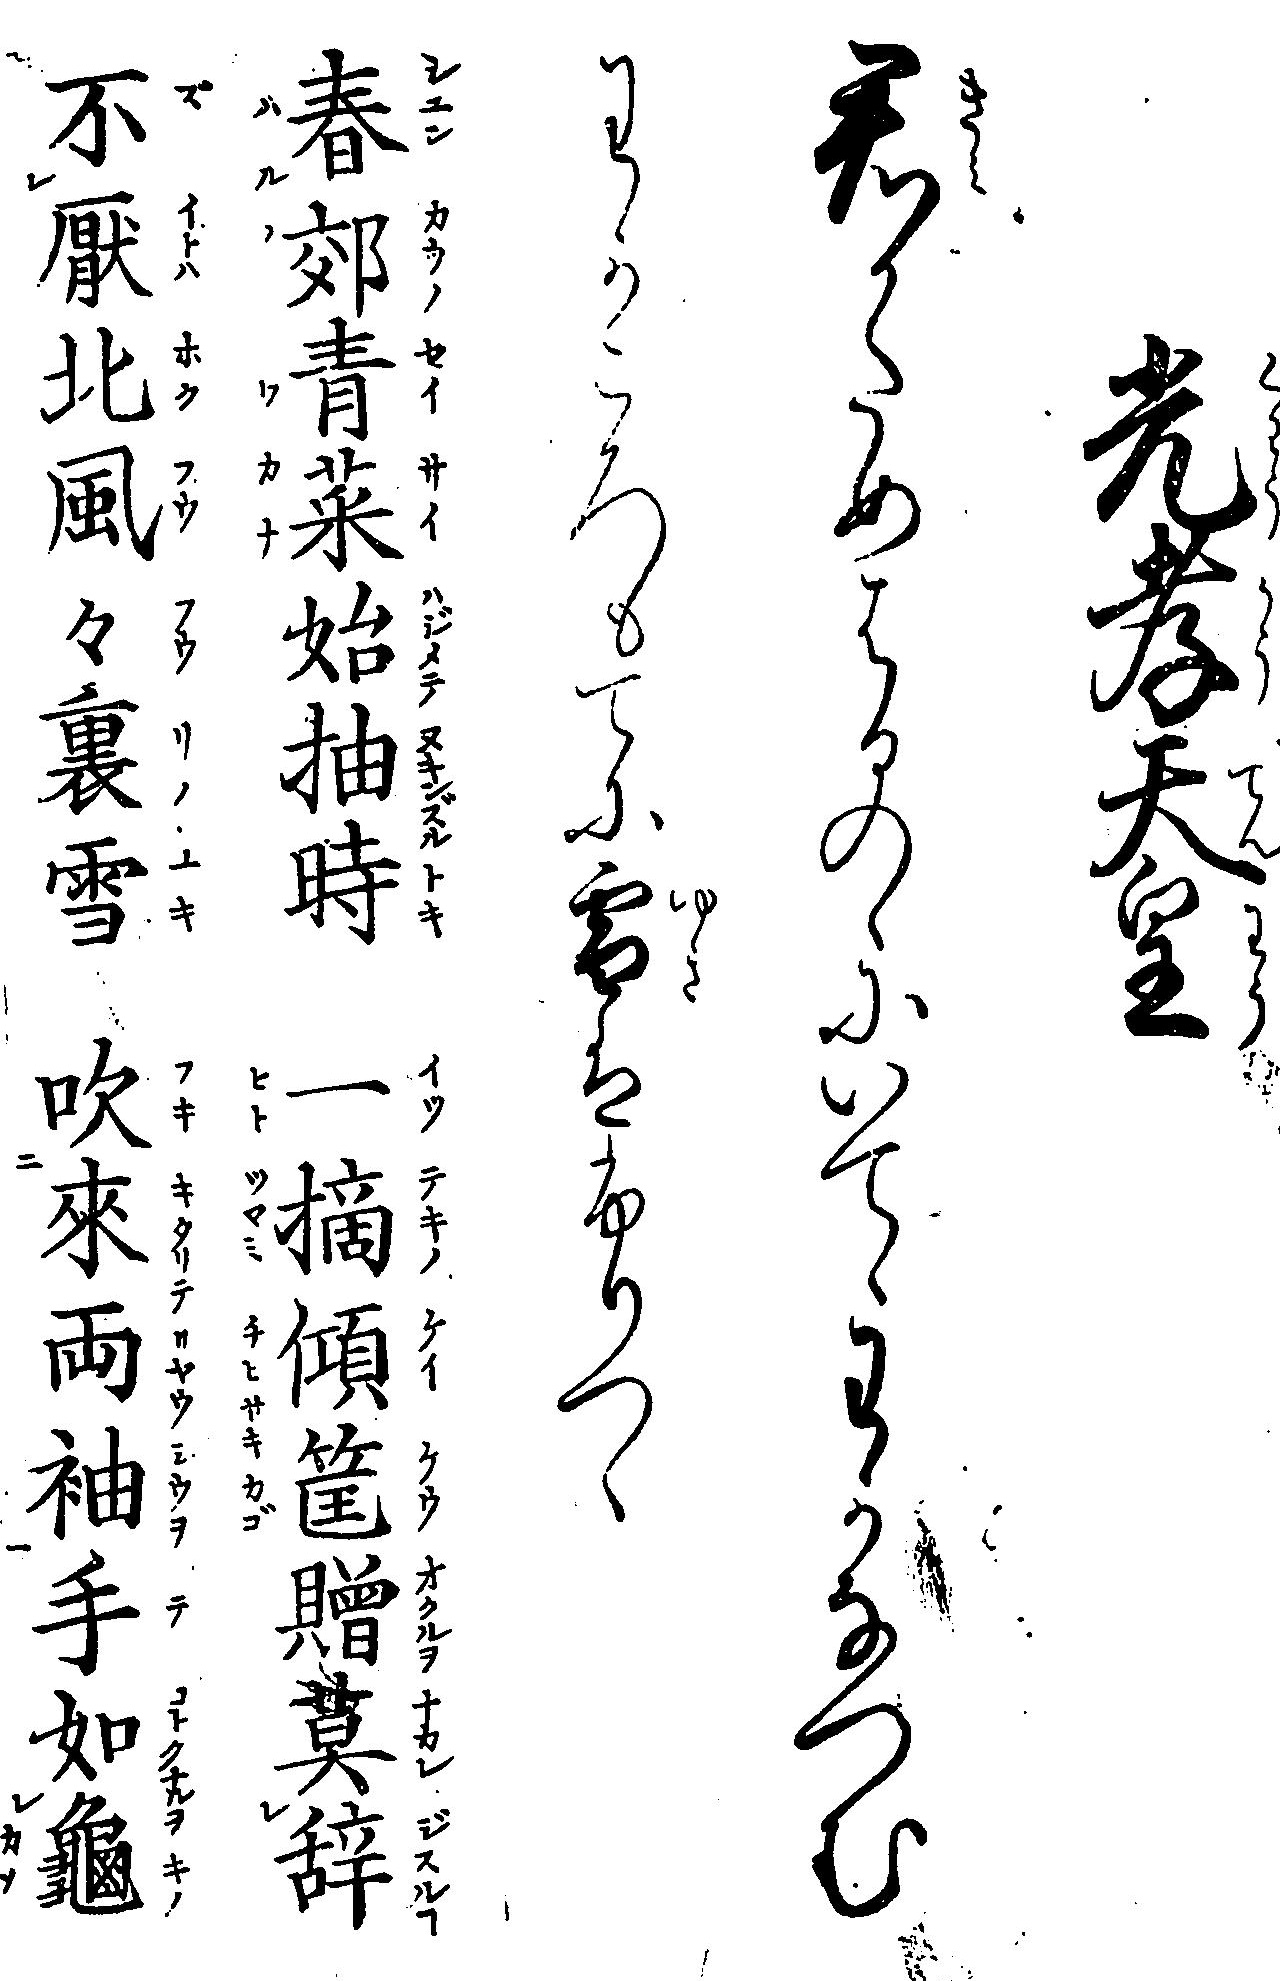 光孝天皇
君かためはるのゝにいてゝわかなつむ
わかころもてに雪はふりつゝ
春郊青菜始抽時 一摘傾筐贈莫辞
不厭北風々裏雪 吹來両袖手如龜